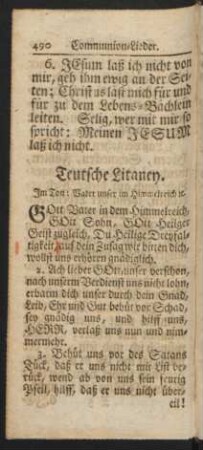 490 Communion-Lieder.
6. JEsum laß ich nicht von
mir, geh ihm ewig an der Sei-
ten; Christus läst mich für und
für zu dem Lebens-Bächlein
leiten. Selig, wer mit mir so
spricht: Meinen JESUM
laß ich nicht.
Teutsche Litaney.
Im Ton: Vater unser im Himmelreich ꝛc.
GOtt Vater in dem Himmelreich,
GOtt Sohn, GOtt Heiliger
Geist zugleich, Du Heilige Dreyfal-
tigkeit, auf dein Zusag wir bitten dich,
wollst uns erhören gnädiglich.
2. Ach lieber GOtt unser verschon,
nach unserm Verdienst uns nicht lohn,
erbarm dich unser durch dein Gnad,
Leib, Ehr und Gut behüt vor Schad,
sey gnädig uns, und hilff uns,
HERR, verlaß uns nun und nim-
mermehr.
3. Behüt uns vor des Satans
Tück, daß er uns nicht mit List be-
rück, wend ab von uns sein feurig
Pfeil, hilff, daß er uns nicht über-
eil!